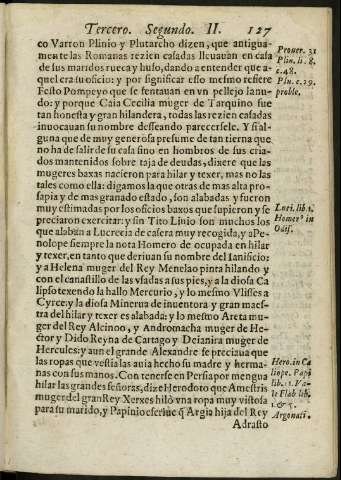 Tercero. Segundo. II. 127
co Varron Plinio y Plutarcho dizen, que antigua-
mente las Romanas rezien casadas lleuauàn en casa
de sus maridos rueca y huso, dando a entender que a-
quel era su oficio: y por significar esto mesmo refiere
Festo Pompeyo que se sentauan en vn pellejo lanu-
do: y porque Caia Cecilia muger de Tarquino fue
tan honesta y gran hilandera, todas las rezien casadas
inuocauan su nombre desseando parecersele. Y si al-
guna que de muy generosa presume de tan tierna que
no ha de salir de su casa sino en hombros de sus cria-
dos mantenidos sobre taja de deudas, dixere que las
mugeres baxas nacieron para hilar y texer, mas no las
tales como ella: digamosla que otras de mas alta pro-
sapia y de mas granado estado, son alabadas y fueron
muy estimadas por los oficios baxos que supieron y se
preciaron exercitar: y sin Tito Liuio son muchos los
que alabàn a Lucrecia de casera muy recogida, y a Pe-
nolope siempre la nota Homero de ocupada en hilar
y texer, en tanto que deriuan su nombre del lanificio:
y a Helena muger del Rey Menelao pinta hilando y
con el canastillo de las vsadas a sus pies, y a la diosa Ca
lipso texendo la hallo Mercurio, y lo mesmo Vlisses a
Cyrce: y la diosa Minerua de inuentora y gran maes-
tra del hilar y texer es alabada: y lo mesmo Areta mu-
ger del Rey Alcinoo, y Andromacha muger de He-
ctor y Dido Reyna de Cartago y Deianira muger de
Hercules: y aun el grande Alexandre se preciaua que
las ropas que vestia las auia hecho su madre y herma-
nas con sus manos. Con tenerse en Persia por mengua
hilar las grandes señoras, dize Herodoto que Amestris
muger del gran Rey Xerxes hilò vna ropa muy vistosa
para su marido, y Papinio escriue q̃ Argia hija del Rey
Adrasto
Prouer. 31
Plin. li. 8.
c. 48.
Plu. c. 29.
proble.
Liui. lib. 1.
Homer° in
Odis.
Hero. in Ca
liope. Papi
lib. 1. Va-
le Flab lib.
1. & 5.
Argonati.